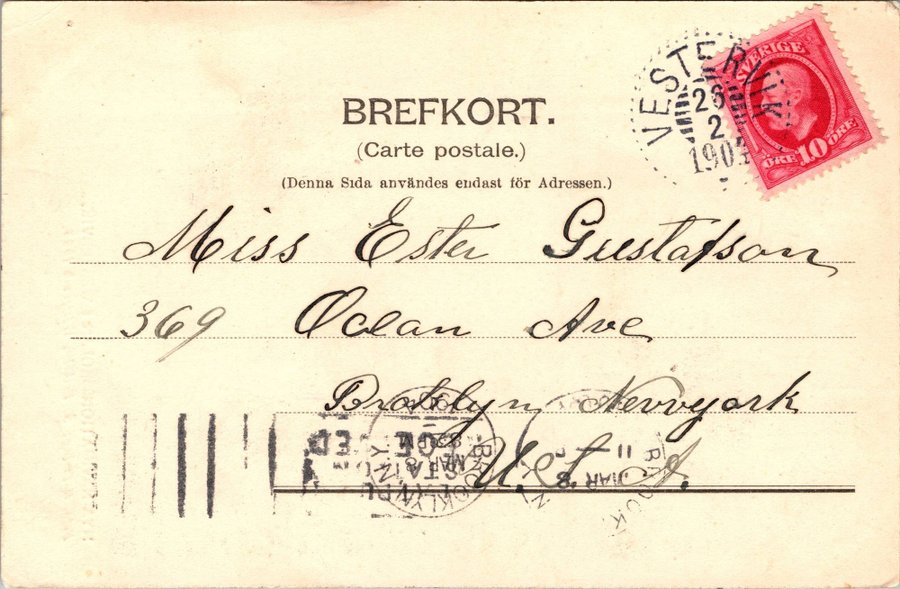 BREFKORT.
(Carte postale.)
(Denna Sida användes endast för Adressen.)
VESTERVIK
2
190
SVERIGE
ÖRE 10 ÖRE
Miss Ester Gustafson
369 Ocean Ave
Brooklyn Newyork
U.S.A.
BROOKLYN, N.Y.
MAR 8
MAR 8
11